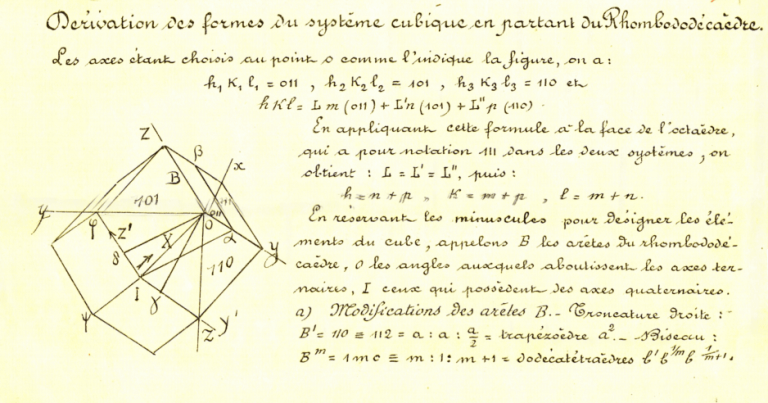 Dérivation des formes du système cubique en partant du Rhombododécaèdre.
Les axes étant choisis au point o comme l'indique la figure, on a :
h₁ K₁ l₁ = 011 , h₂ K₂ l₂ = 101 , h₃ K₃ l₃ = 110 et
h K l = L m (011) + L' n (101) + L" p (110) .
En appliquant cette formule à la face de l'octaèdre,
qui a pour notation 111 dans les deux systèmes, on
obtient : L = L' = L", puis :
h = n + p , K = m + p , l = m + n .
En réservant les minuscules pour désigner les élé-
ments du cube, appelons B les arêtes du rhombodo dé-
caèdre, O les angles auxquels aboutissent les axes ter-
naires, I ceux qui possèdent des axes quaternaires.
a) Modifications des arêtes B. - Troncature droite :
B¹ = 110 ≡ 112 = a : a : a/2 = trapézoèdre a². - Biseau :
Bᵐ = 1m0 ≡ m : 1 : m + 1 = dodécatétraèdres b¹ b^1/m b^1/m+1.
Z
β
x
B
101
111
y
φ
Z'
011
O
α
X
δ
110
y
I
γ
ψ
Z
y'